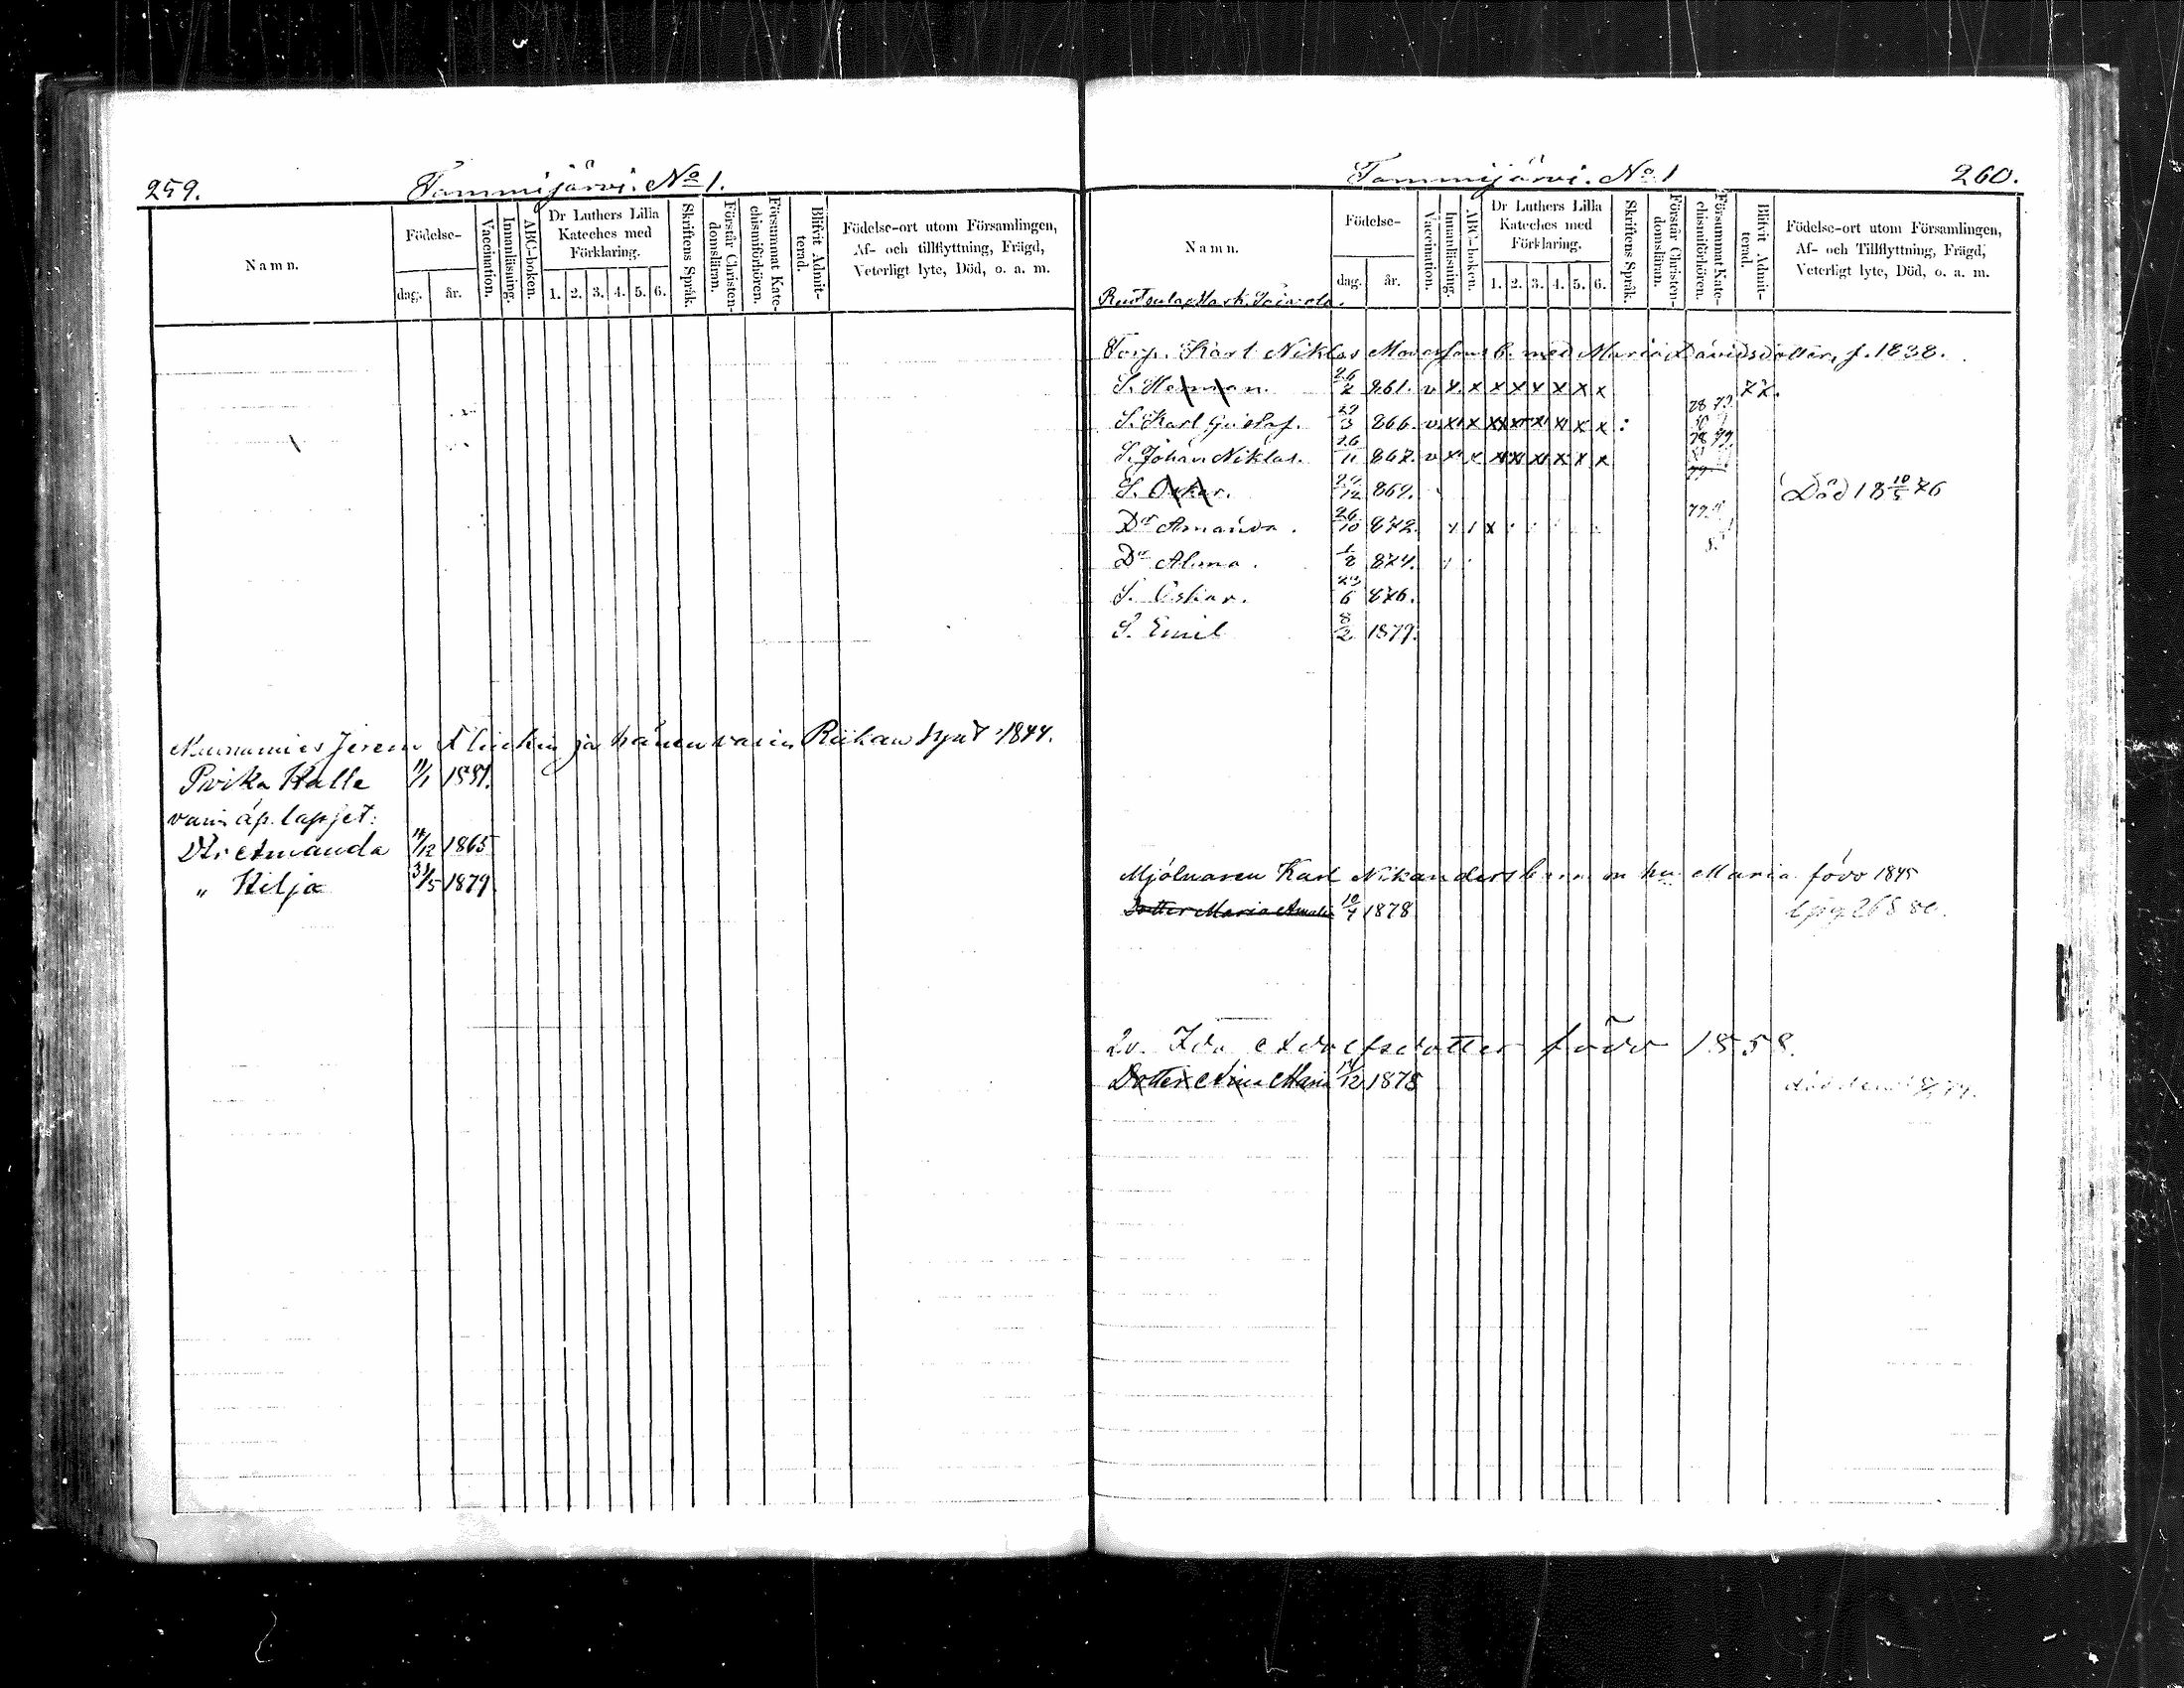 259.
Tammijärvi. No 1.
Namn.
Födelse-
dag.
år.
Vaccination.
Innanläsning.
ABC-boken.
Dr Luthers Lilla
Kateches med
Förklaring.
1. 2. 3. 4. 5. 6.
Skriftens Språk.
Förstår Christen-
domsläran.
Försummat Kate-
chismiförhören.
Blifvit Admit-
terad.
Födelse-ort utom Församlingen,
Af- och tillflyttning, Frägd,
Veterligt lyte, Död, o. a. m.
Jerem ja hänen Riikan synt 1844.
Poika Kalle 11/1
lapset:
Amanda 14/12 1865
" Hilja 31/5 1879
Tammijärvi. No 1
260.
Namn.
Födelse-
dag.
år.
Vaccination.
Innanläsning.
ABC-boken.
Dr Luthers Lilla
Kateches med
Förklaring.
1. 2. 3. 4. 5. 6.
Skriftens Språk.
Förstår Christen-
domsläran.
Försummat Kate-
chismiförhören.
Blifvit Admit-
terad.
Födelse-ort utom Församlingen,
Af- och Tillflyttning, Frägd,
Veterligt lyte, Död, o. a. m.
Torp. Karl Niklas b. med Maria Davidsdotter, f. 1838.
S. Herman. 26/2 861. v x x x x x x x x 77.
S. Karl Gustaf. 29/3 866. v x x x x x x x x 78 79
S. Johan Niklas. 26/11 867. v x x x x x x x x 78 79
S. Oskar. 29/12 869. Död 18 10/5 76
Dr Amanda. 26/10 872.
Dr Alma. 1/8 874.
S. Oskar. 23/6 876.
S. Emil 8/2 1879.
Mjölnaren Karl Nikanders barn m hu Maria född 1845
Dotter Maria Amalia 10/7 1878
Ida Adolfsdotter född 1858.
Dotter Maria 14/12 1878